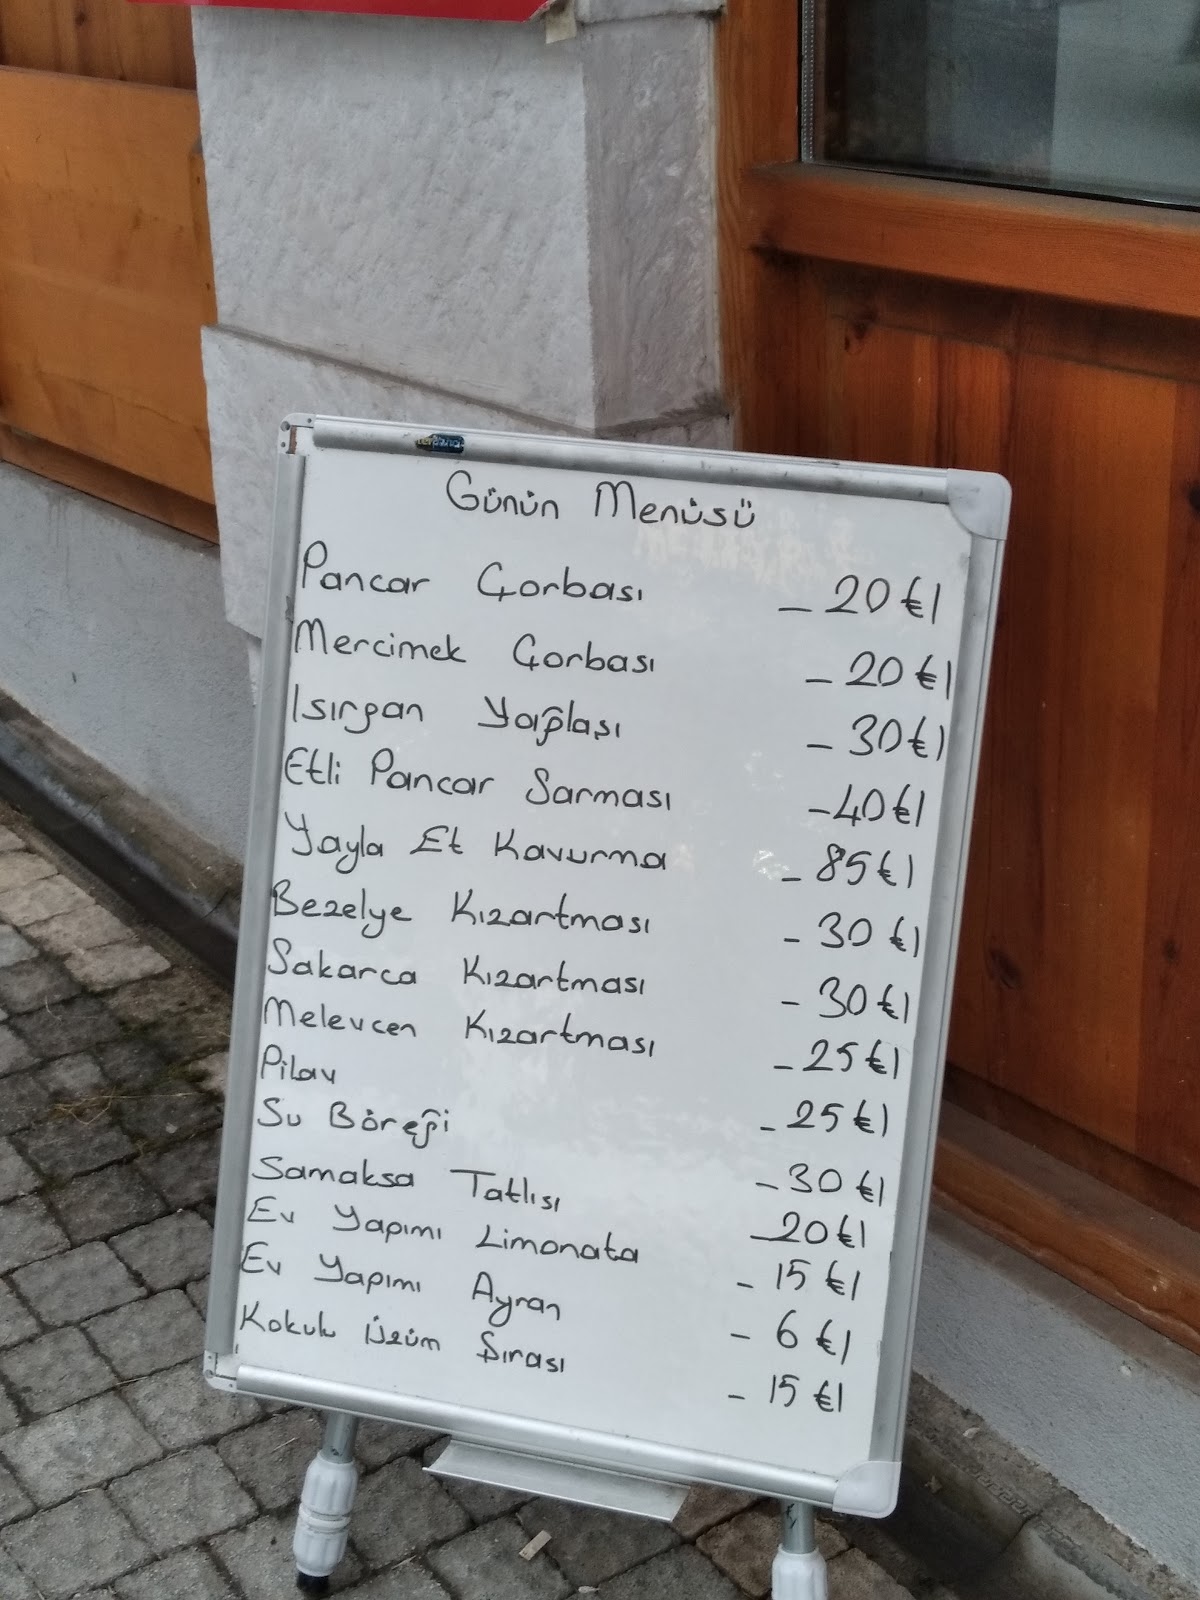 Günün Menüsü
Pancar Çorbası - 20 ₺l
Mercimek Çorbası - 20 ₺l
Isırgan Yağlaşı - 30 ₺l
Etli Pancar Sarması - 40 ₺l
Yayla Et Kavurma - 85 ₺l
Bezelye Kızartması - 30 ₺l
Sakarca Kızartması - 30 ₺l
Melevcen Kızartması - 25 ₺l
Pilav - 25 ₺l
Su Böreği - 30 ₺l
Samaksa Tatlısı - 20 ₺l
Ev Yapımı Limonata - 15 ₺l
Ev Yapımı Ayran - 6 ₺l
Kokulu Üzüm Şırası - 15 ₺l